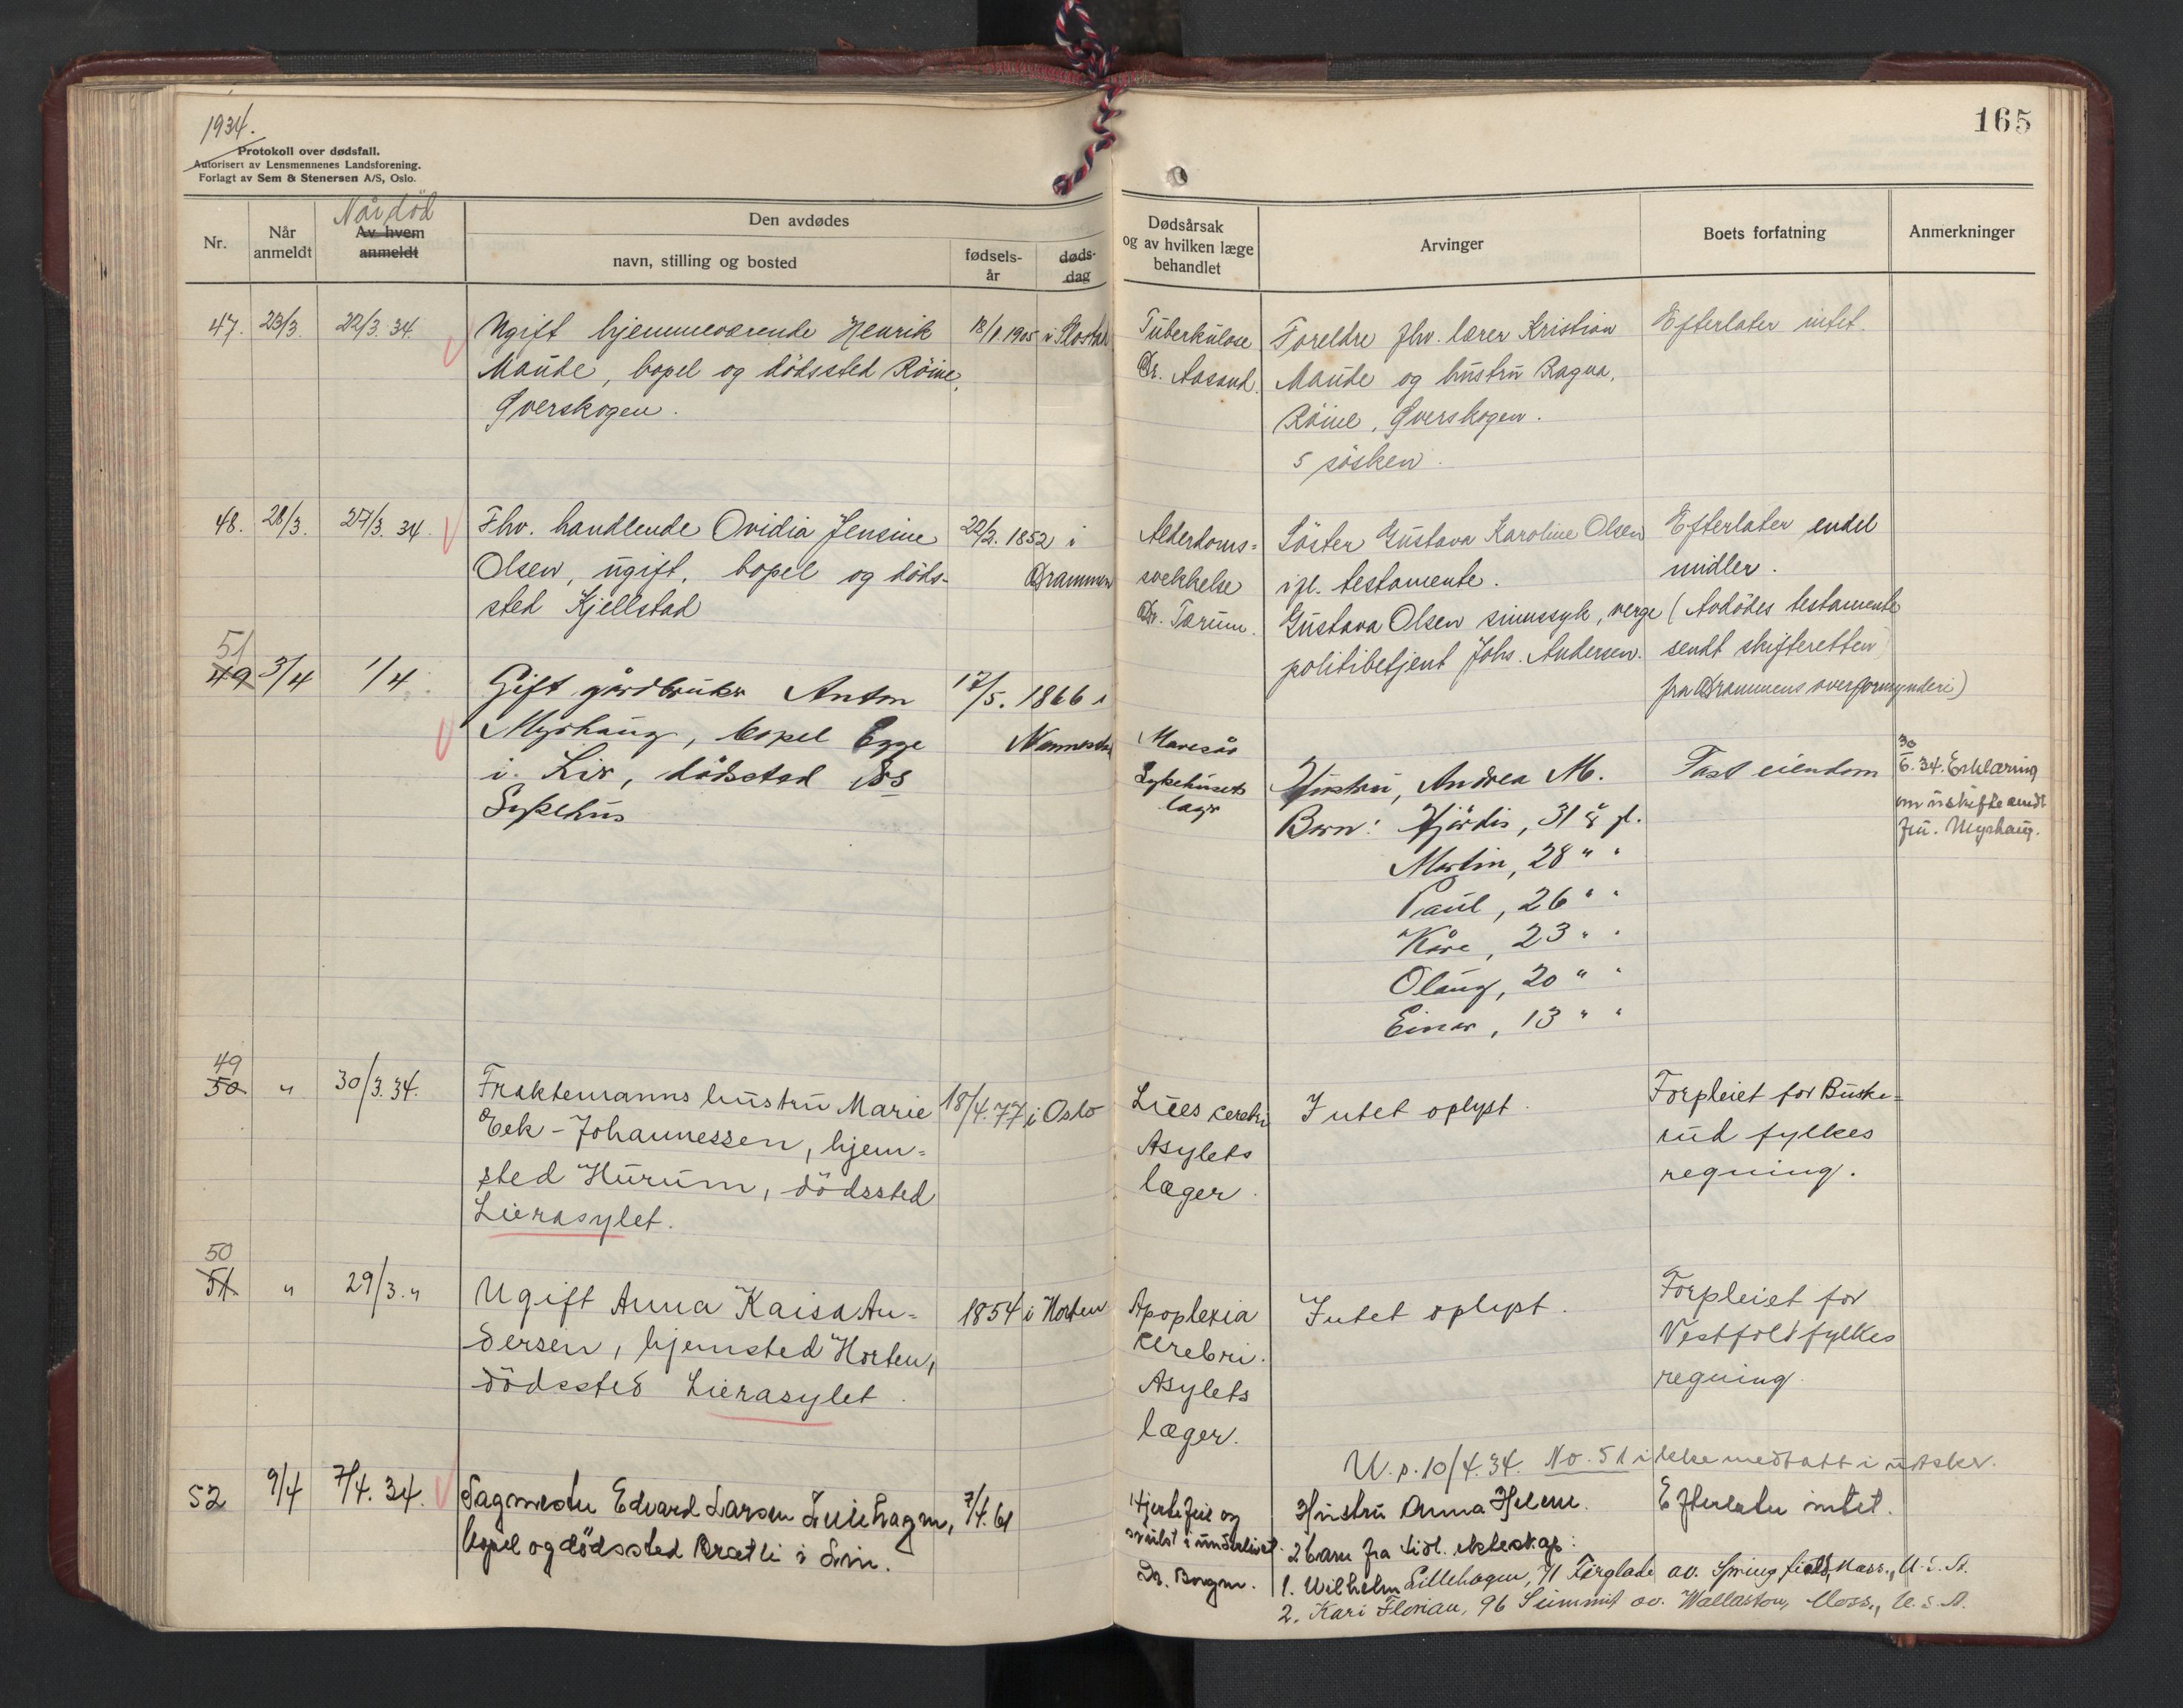 1934.
Protokoll over dødsfall.
Autorisert av Lensmennenes Landsforening.
Forlagt av Sem & Stenersen A/S, Oslo.
165
Nr.
Når anmeldt
Når död
Av hvem anmeldt
Den avdødes
navn, stilling og bosted
fødsels-år
døds-dag
Dødsårsak
og av hvilken læge
behandlet
Arvinger
Boets forfatning
Anmerkninger
47. 23/3. 22/3. 34. Ugift hjemmeværende Henrik 18/1.1905 i
Maude, bopel og dödssted Röine,
Överskogen.
Tuberkulose
Dr. Aasand.
Foreldre fhv. lærer Kristian
Maude og hustru Ragna,
Röine, Överskogen.
5 søsken.
Efterlater intet.
48. 28/3. 27/3. 34. Fhv. handlende Ovidia Jensine 22/2. 1852 i
Olsen, ugift, bopel og döds- Drammen
sted Kjellstad
Alderdoms-
svekkelse
Dr. Tærum.
Söster Gustava Karoline Olsen
ifl. testamente.
Gustava Olsen sinnssyk, verge
politibetjent Johs. Andersen.
Efterlater endel
midler.
(Avdödes testamente
sendt skifteretten
fra Drammens overformynderi)
51
49 3/4 1/4 Gift gårdbruker Anton 17/5. 1866 i
Myrhaug, bopel Egge Nannestad
i Lier, dödssted Dss
Sykehus
Sykehusets
læge
Hustru, Andrea M.
Barn: Hjördis, 31 år gl.
Martin, 28 " "
Paul, 26 " "
Kåre, 23 " "
Olaug, 20 " "
Einar, 13 " "
Fast eiendom
30/6. 34. Erklæring
om uskifte avgidt
fru. Myrhaug.
49
50 " 30/3. 34. Fraktemanns hustru Marie 18/4. 77 i Oslo
Eek-Johannessen, hjem-
sted Hurum, dödssted
Lierasylet.
Lues cerebri
Asylets
læger.
Intet oplyst.
Forpleiet for Buske-
rud fylkes
regning.
50
51 " 29/3. " Ugift Anna Kaisa An- 1854 i Horten
dersen, hjemsted Horten,
dödssted Lierasylet.
Apoplexia
cerebri.
Asylets
læger.
Intet oplyst.
Forpleiet for
Vestfold fylkes
regning.
U.p. 10/4. 34. No. 51 ikke medtatt i utskr.
52 9/4 7/4. 34. Sagmester Edvard Larsen Lillehagen, 7/4. 61
bopel og dödssted Bratli i Lier.
Hjertefeil og
svulst i underlivet.
Dr. Borgen.
Hustru Anna Helene.
2 barn fra tidl. ekteskap:
1. Wilhelm Lillehagen, 71 av. Springfield, Mass., U.S.A.
2. Kari Florian, 96 Summit av. Wallaston, Mass., U.S.A.
Efterlater intet.